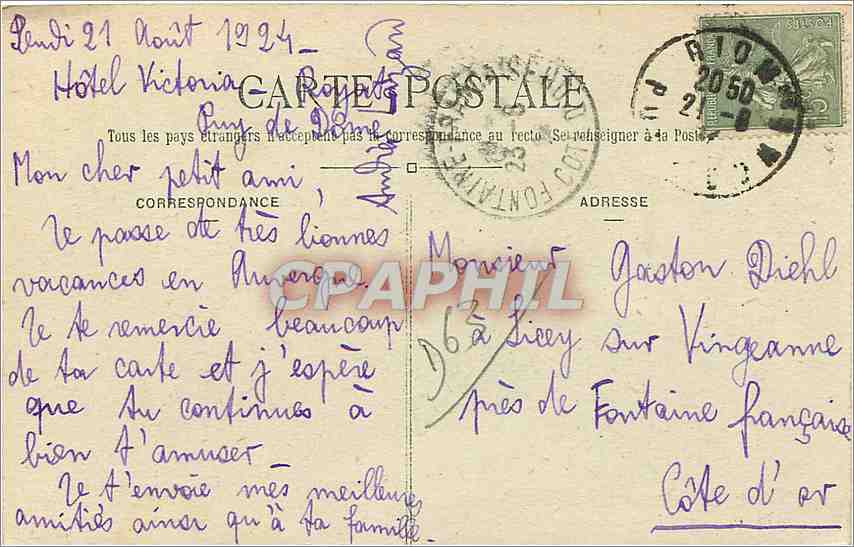 Jeudi 21 Août 1924_
Hôtel Victoria _ Royat
Puy de Dôme
CARTE POSTALE
Tous les pays étrangers n'acceptent pas la correspondance au recto (Se renseigner à la Poste)
CORRESPONDANCE
Mon cher petit ami,
Je passe de très bonnes
vacances en Auvergne.
Je te remercie beaucoup
de ta carte et j'espère
que tu continues à
bien t'amuser
Je t'envoie mes meilleures
amitiés ainsi qu'à ta famille.
André
ADRESSE
Monsieur Gaston Diehl
à Licey sur Vingeanne
près de Fontaine française
Côte d'or
D63
RIOM
20 50
21 - 8
FONTAINE FRANÇAISE
COTE D'OR
23
POSTES
CPAPHIL